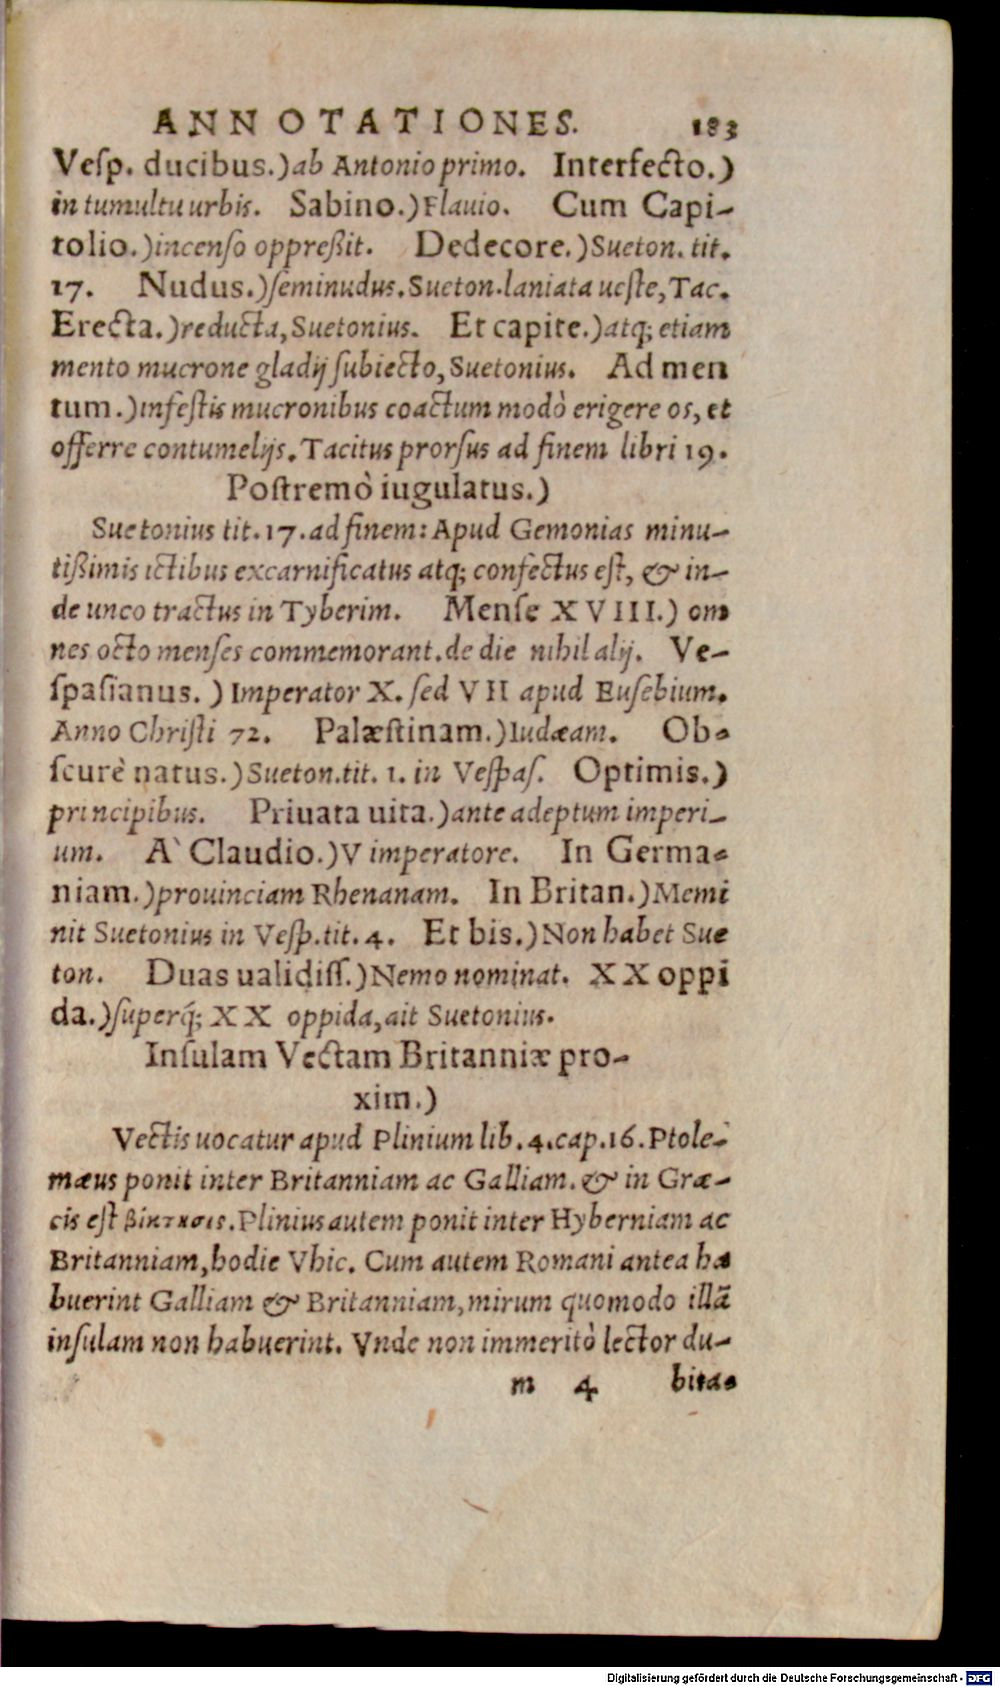 ANNOTATIONES. 183
Veſp. ducibus.) ab Antonio primo. Interfecto.)
in tumultu urbis. Sabino.) Flauio. Cum Capi-
tolio.) incenſo oppreßit. Dedecore.) Sueton. tit.
17. Nudus.) ſeminudus. Sueton. laniata ueſte, Tac.
Erecta.) reducta, Suetonius. Et capite.) atq; etiam
mento mucrone gladij ſubiecto, Suetonius. Ad men
tum.) infeſtis mucronibus coactum modò erigere os, et
offerre contumelijs. Tacitus prorſus ad finem libri 19.
Poſtremò iugulatus.)
Suetonius tit. 17. ad finem: Apud Gemonias minu-
tißimis ictibus excarnificatus atq; confectus eſt, & in-
de unco tractus in Tyberim. Menſe XVIII.) om
nes octo menſes commemorant. de die nihil alij. Ve-
ſpaſianus.) Imperator X. ſed VII apud Euſebium.
Anno Chriſti 72. Palæſtinam.) Iudæam. Ob-
ſcurè natus.) Sueton. tit. 1. in Veſpaſ. Optimis.)
principibus. Priuata uita.) ante adeptum imperi-
um. A` Claudio.) V imperatore. In Germa-
niam.) prouinciam Rhenanam. In Britan.) Memi
nit Suetonius in Veſp. tit. 4. Et bis.) Non habet Sue
ton. Duas ualidiſſ.) Nemo nominat. XX oppi
da.) ſuperq́; XX oppida, ait Suetonius.
Inſulam Vectam Britanniæ pro-
xim.)
Vectis uocatur apud Plinium lib. 4. cap. 16. Ptole-
mæus ponit inter Britanniam ac Galliam. & in Græ-
cis eſt Plinius autem ponit inter Hyberniam ac
Britanniam, hodie Vhic. Cum autem Romani antea ha
buerint Galliam & Britanniam, mirum quomodo illã
inſulam non habuerint. Vnde non immeritò lector du-
m 4 bita-
Digitalisierung gefördert durch die Deutsche Forschungsgemeinschaft - DFG